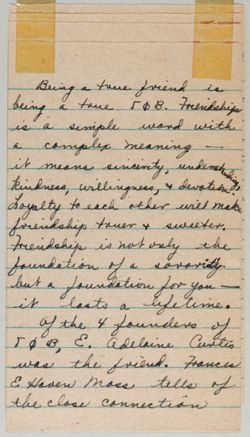 Being a true friend is
being a true ΓΦB. Friendship
is a simple word with
a complex meaning —
it means sincerity, understanding,
kindness, willingness, & devotion.
Loyalty to each other will make
friendship truer & sweeter.
Friendship is not only the
foundation of a sorority
but a foundation for you —
it lasts a lifetime.
Of the 4 founders of
ΓΦB, E. Adelaine Curtis
was the friend. Frances
E Haven Moss tells of
the close connection